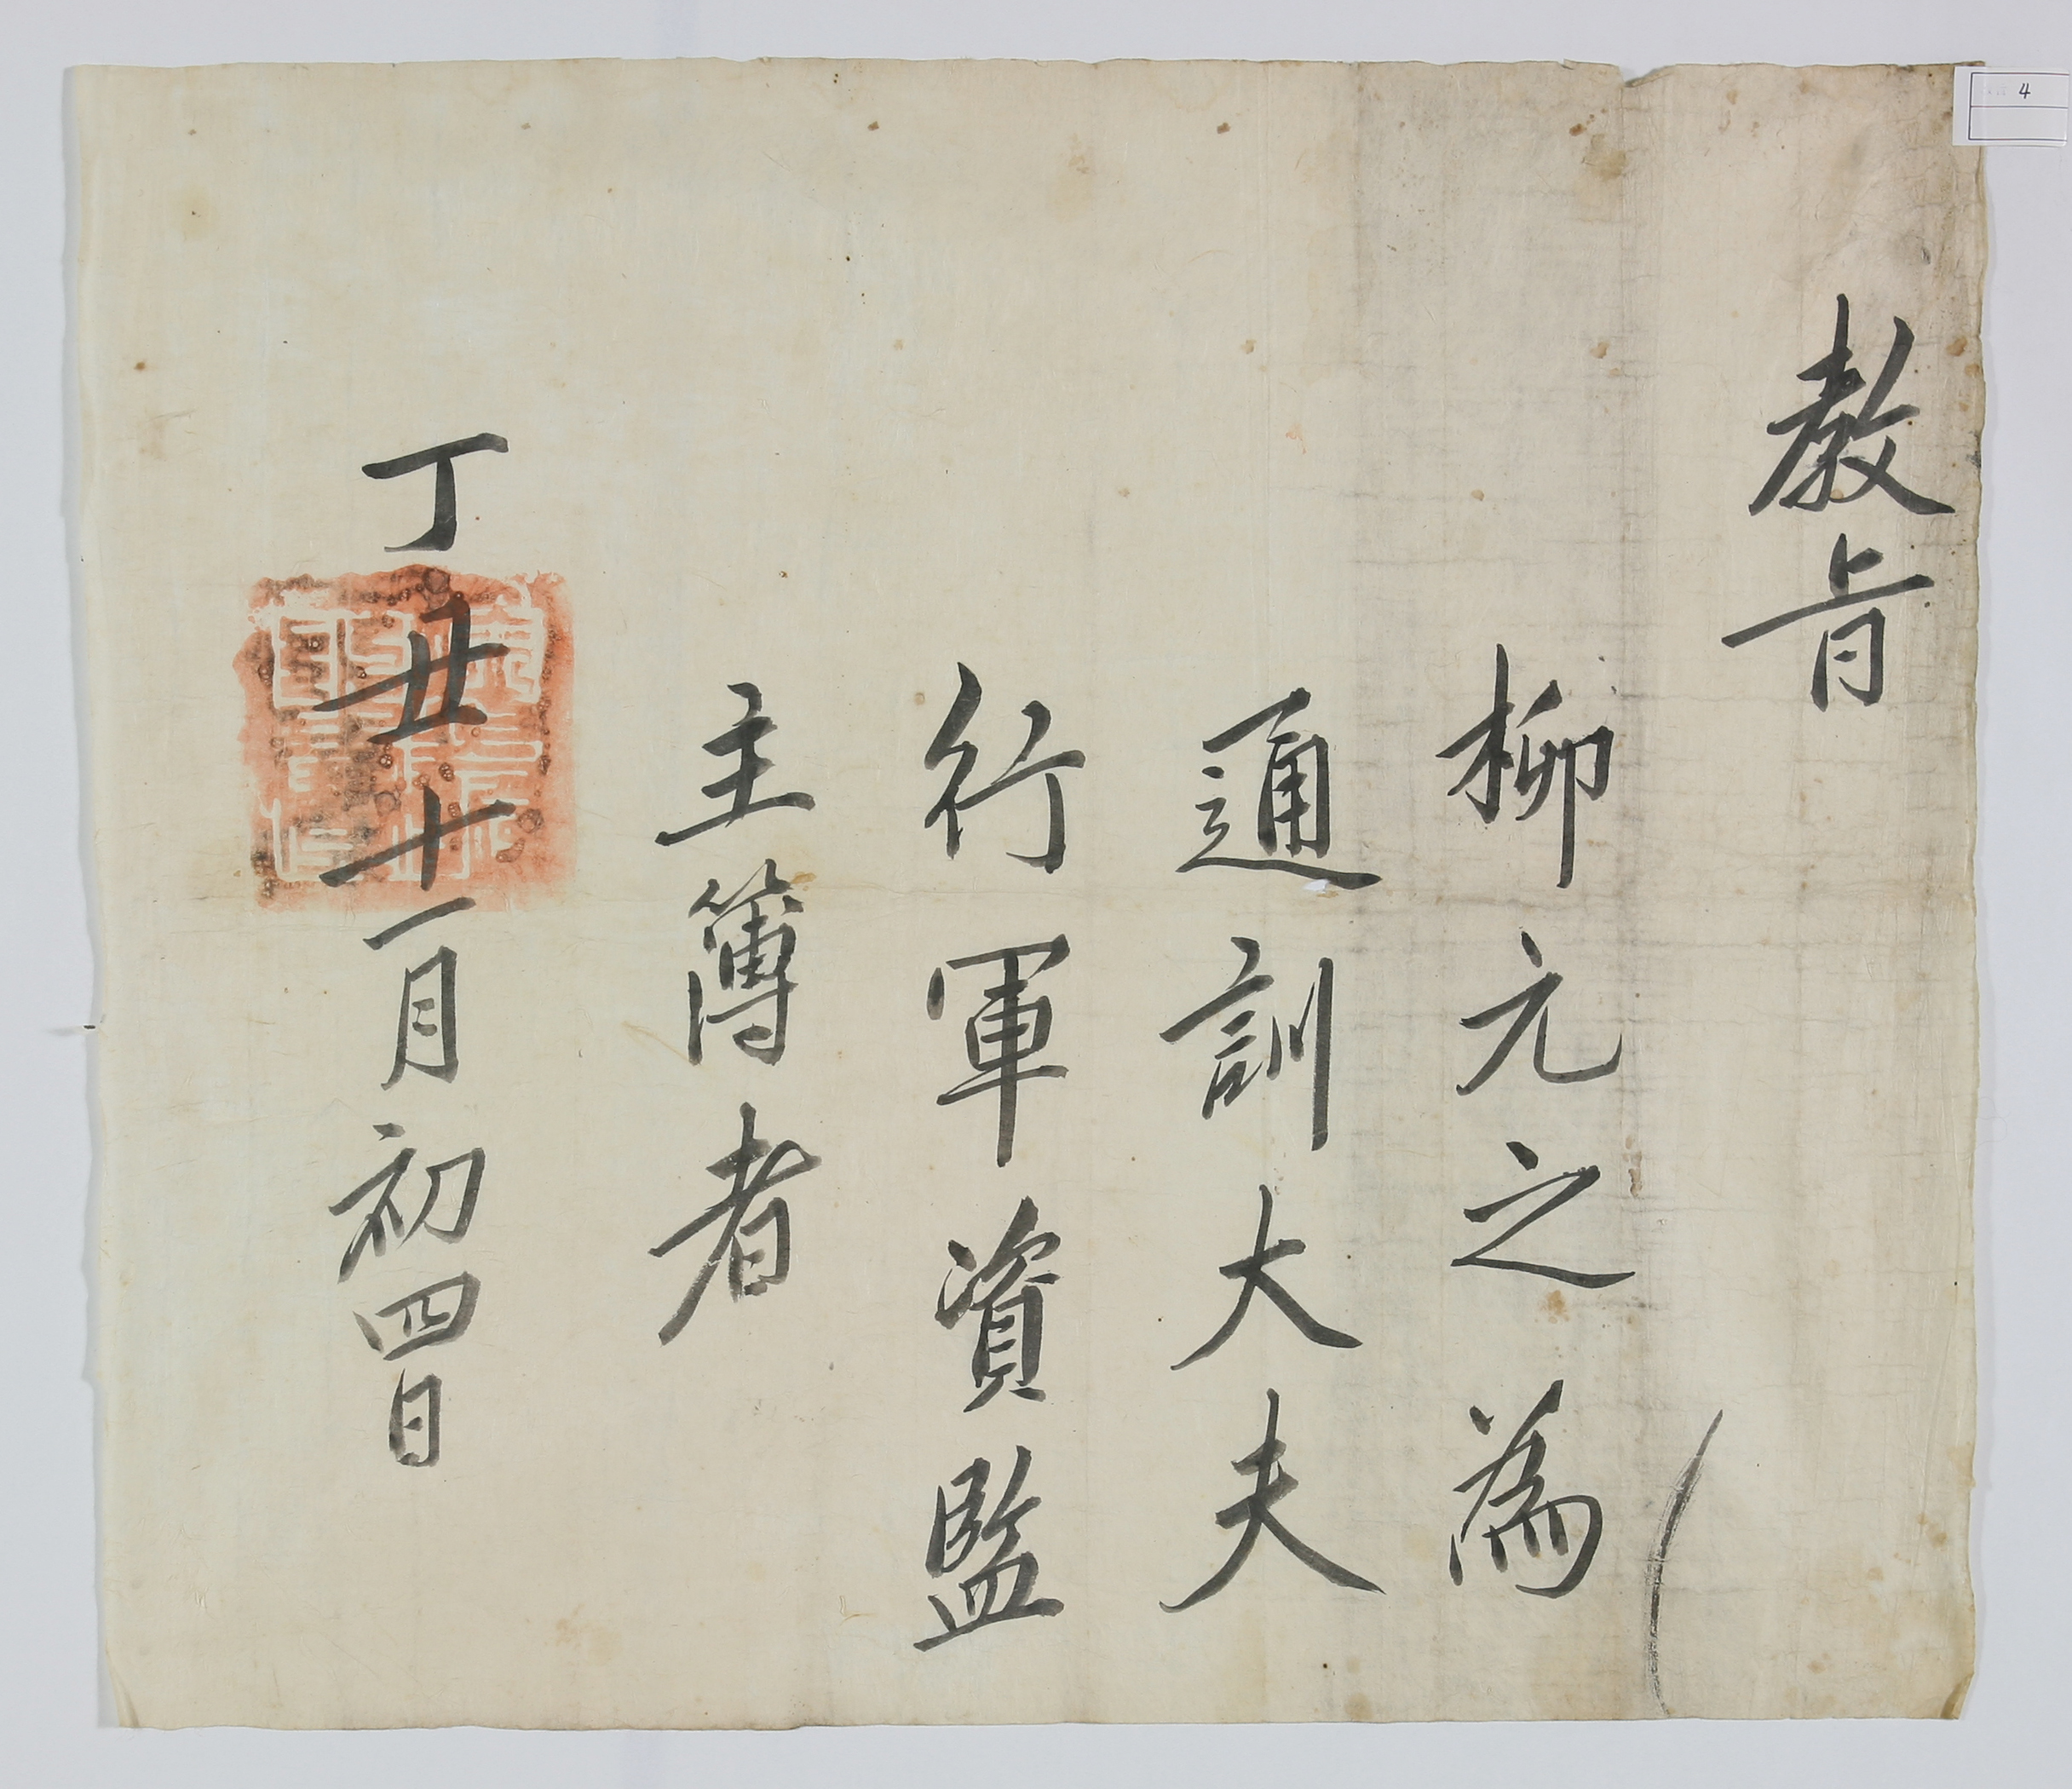 敎旨
柳元之爲
通訓大夫
行軍資監
主簿者
丁丑十一月初四日
4